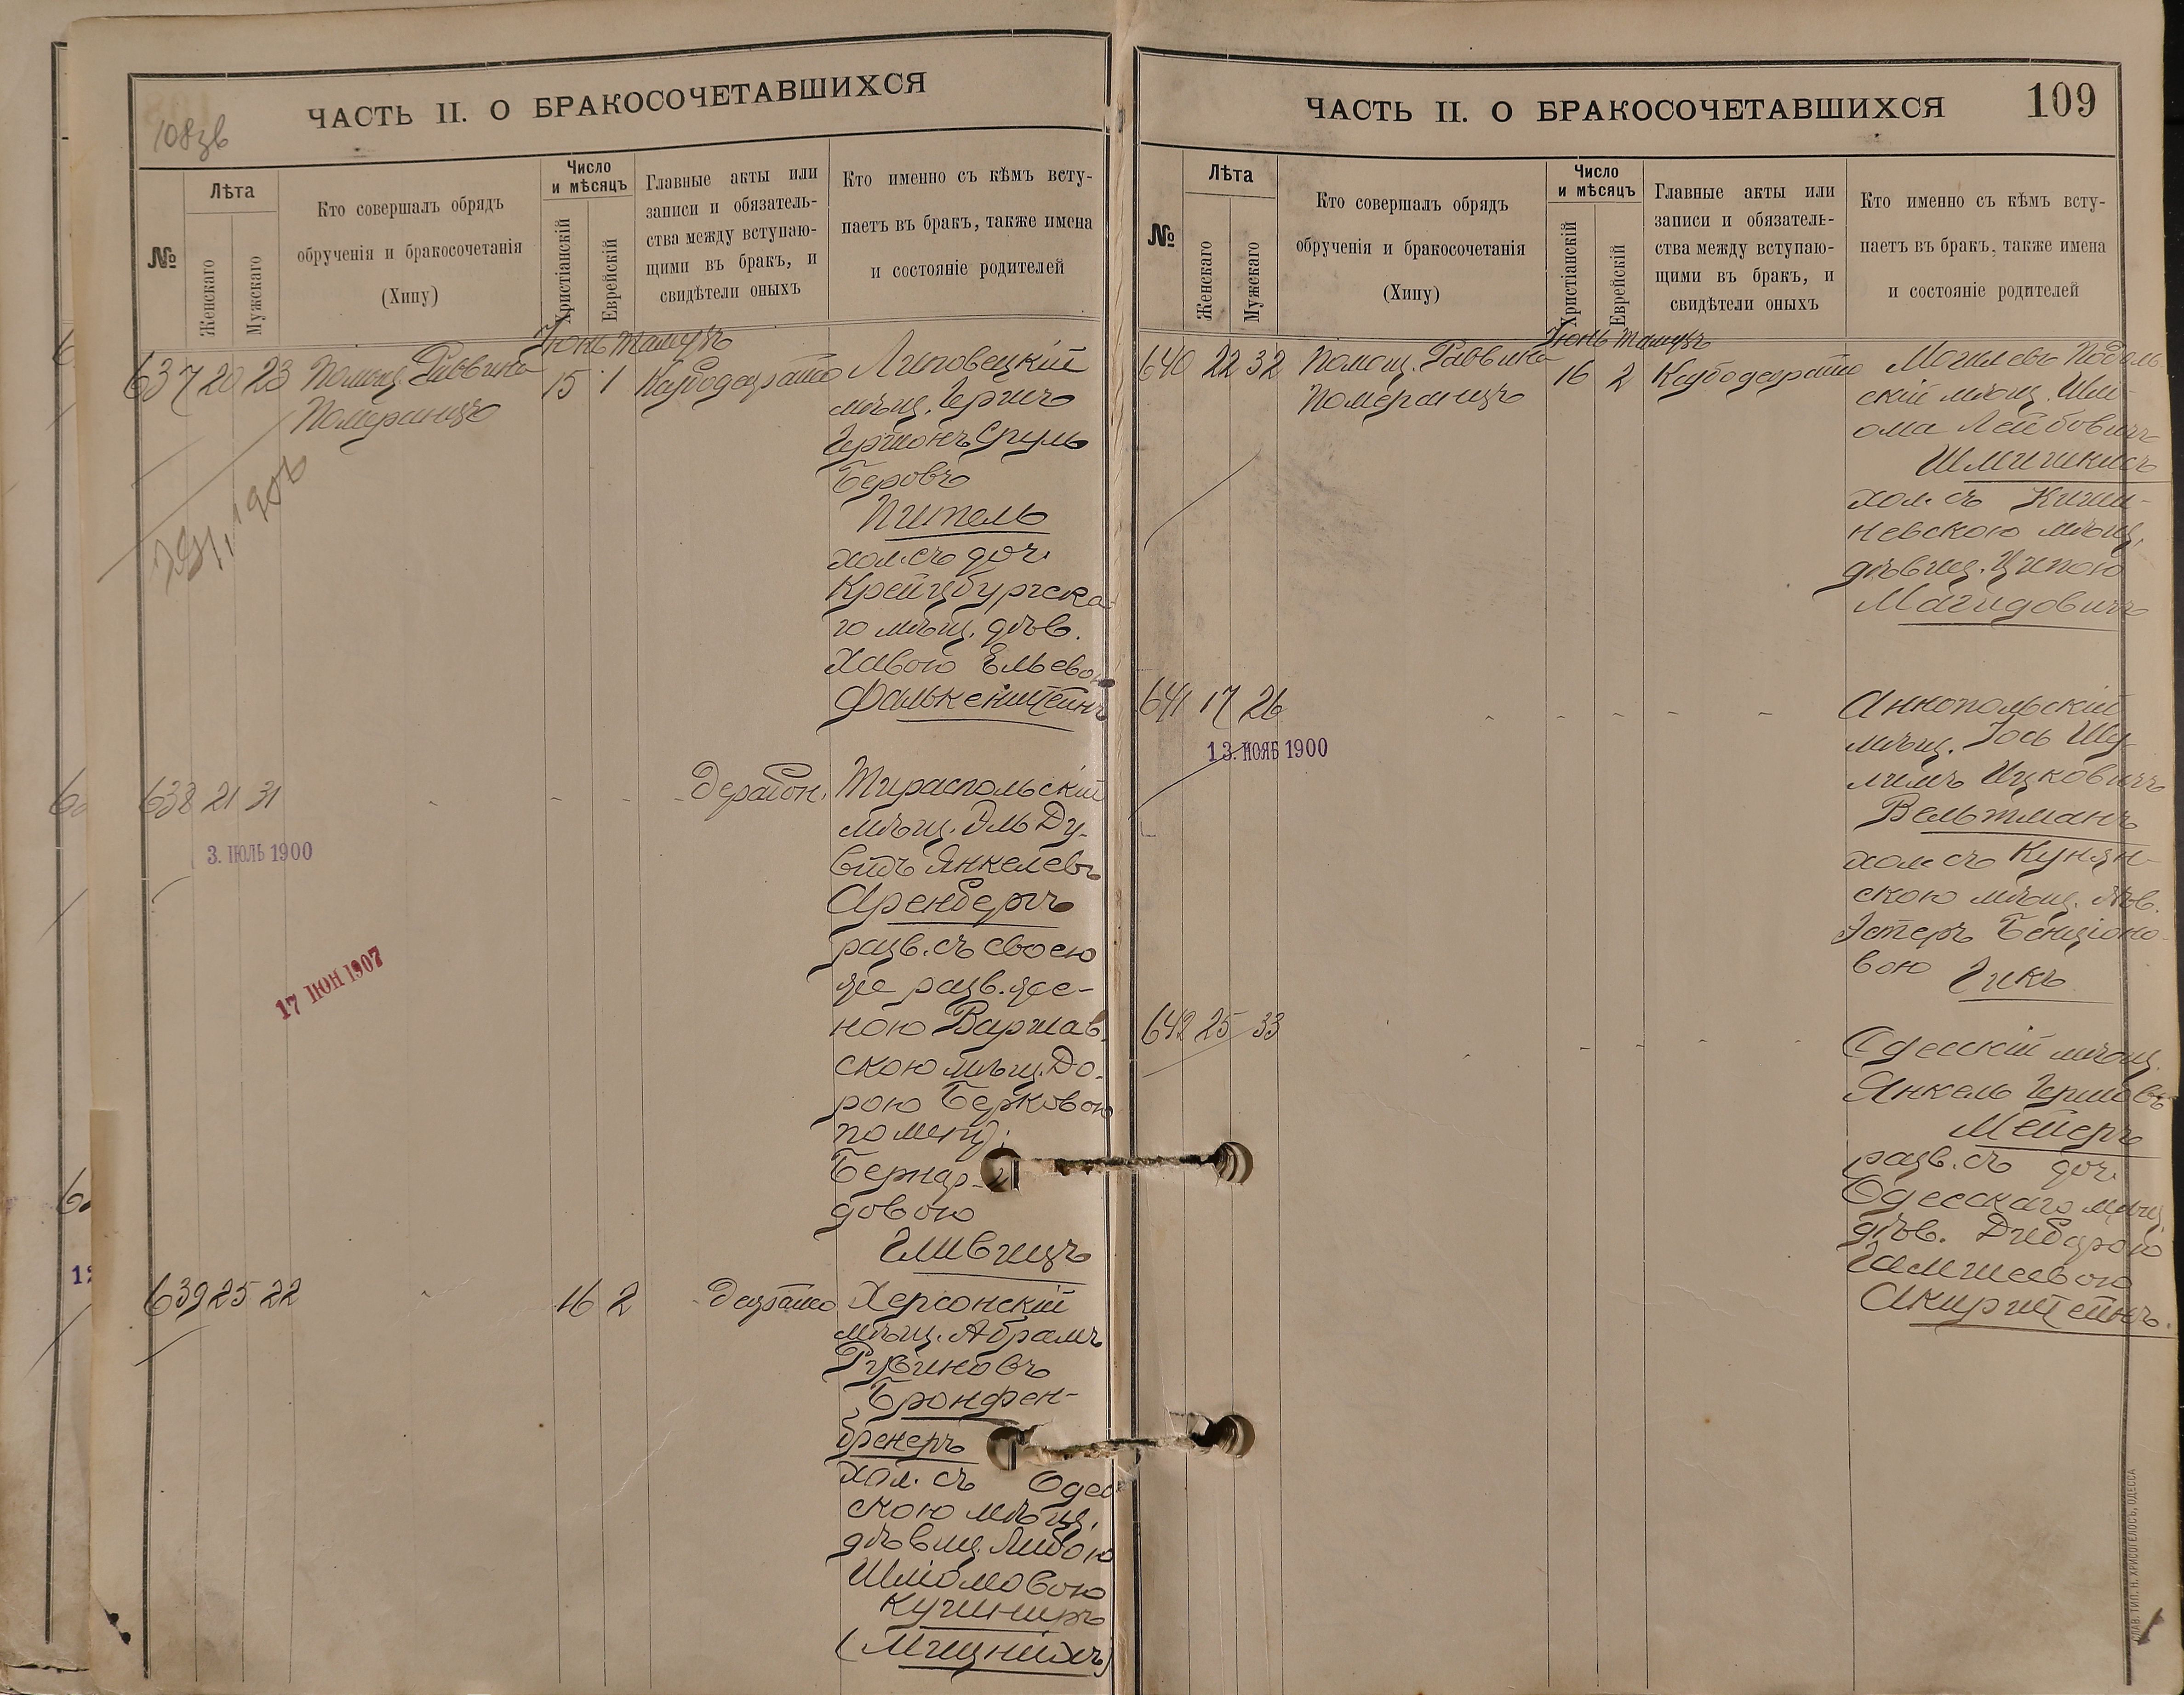 108зв
ЧАСТЬ II. О БРАКОСОЧЕТАВШИХСЯ
№
Лѣта
Женскаго
Мужскаго
Кто совершалъ обрядъ
обрученія и бракосочетанія
(Хипу)
Число
и мѣсяцъ
Христіанскій
Еврейскій
Главные акты или
записи и обязатель-
ства между вступаю-
щими въ бракъ, и
свидѣтели оныхъ
Кто именно съ кѣмъ всту-
паетъ въ бракъ, также имена
и состояніе родителей
Іюнь Тамузъ
637 20 23 Помощ. Раввина
Померанцъ
15 1
Липовецкій
мѣщ. Гершъ
Гершонъ Сруль
Беровъ
Питель
хол. съ доч.
Крейцбургска-
го мѣщ. дѣв.
Хавою Ельевою
Фалькенштейнъ
638 21 31
3. ІЮЛЬ 1900
17 ІЮН 1907
Тираспольскій
мѣщ. Эль Ду-
видъ Янкелевъ
Аренбергъ
разв. съ своею
же разв. же-
ною Варшав-
скою мѣщ. До-
рою Берковою
Бернар-
довою
Гливицъ
639 25 22
16 2
Херсонскій
мѣщ. Абрамъ
Рувиновъ
Бронфен-
бренеръ
хол. съ Одес
скою мѣщ.
дѣвиц. Либою
Шліомовою
Кушниръ
109
ЧАСТЬ II. О БРАКОСОЧЕТАВШИХСЯ
№
Лѣта
Женскаго
Мужскаго
Кто совершалъ обрядъ
обрученія и бракосочетанія
(Хипу)
Число
и мѣсяцъ
Христіанскій
Еврейскій
Главные акты или
записи и обязатель-
ства между вступаю-
щими въ бракъ, и
свидѣтели оныхъ
Кто именно съ кѣмъ всту-
паетъ въ бракъ, также имена
и состояніе родителей
Іюнь Тамузъ
640 22 32 Помощ. Раввина
Померанцъ
16 2
Могилевъ Подоль
скій мѣщ. Шлі-
ома Лейбовичъ
Шмишкисъ
хол. съ Киши-
невскою мѣщ.
дѣвиц. Ципою
Магидовичъ
641 17 26
13. НОЯБ 1900
Аннопольскій
мѣщ. Іось Шу-
лимъ Ицковичъ
Вельтманъ
хол. съ Кунян-
скою мѣщ. дѣв.
Эстеръ Бенціоно-
вою Гикъ
642 25 33
Одесскій мѣщ.
Янкель Гершовъ
Мейеръ
разв. съ доч.
Одесскаго мѣщ.
дѣв. Диборою
СЛАВ. ТИП. Н. ХРИСОГЕЛОСЪ, ОДЕССА